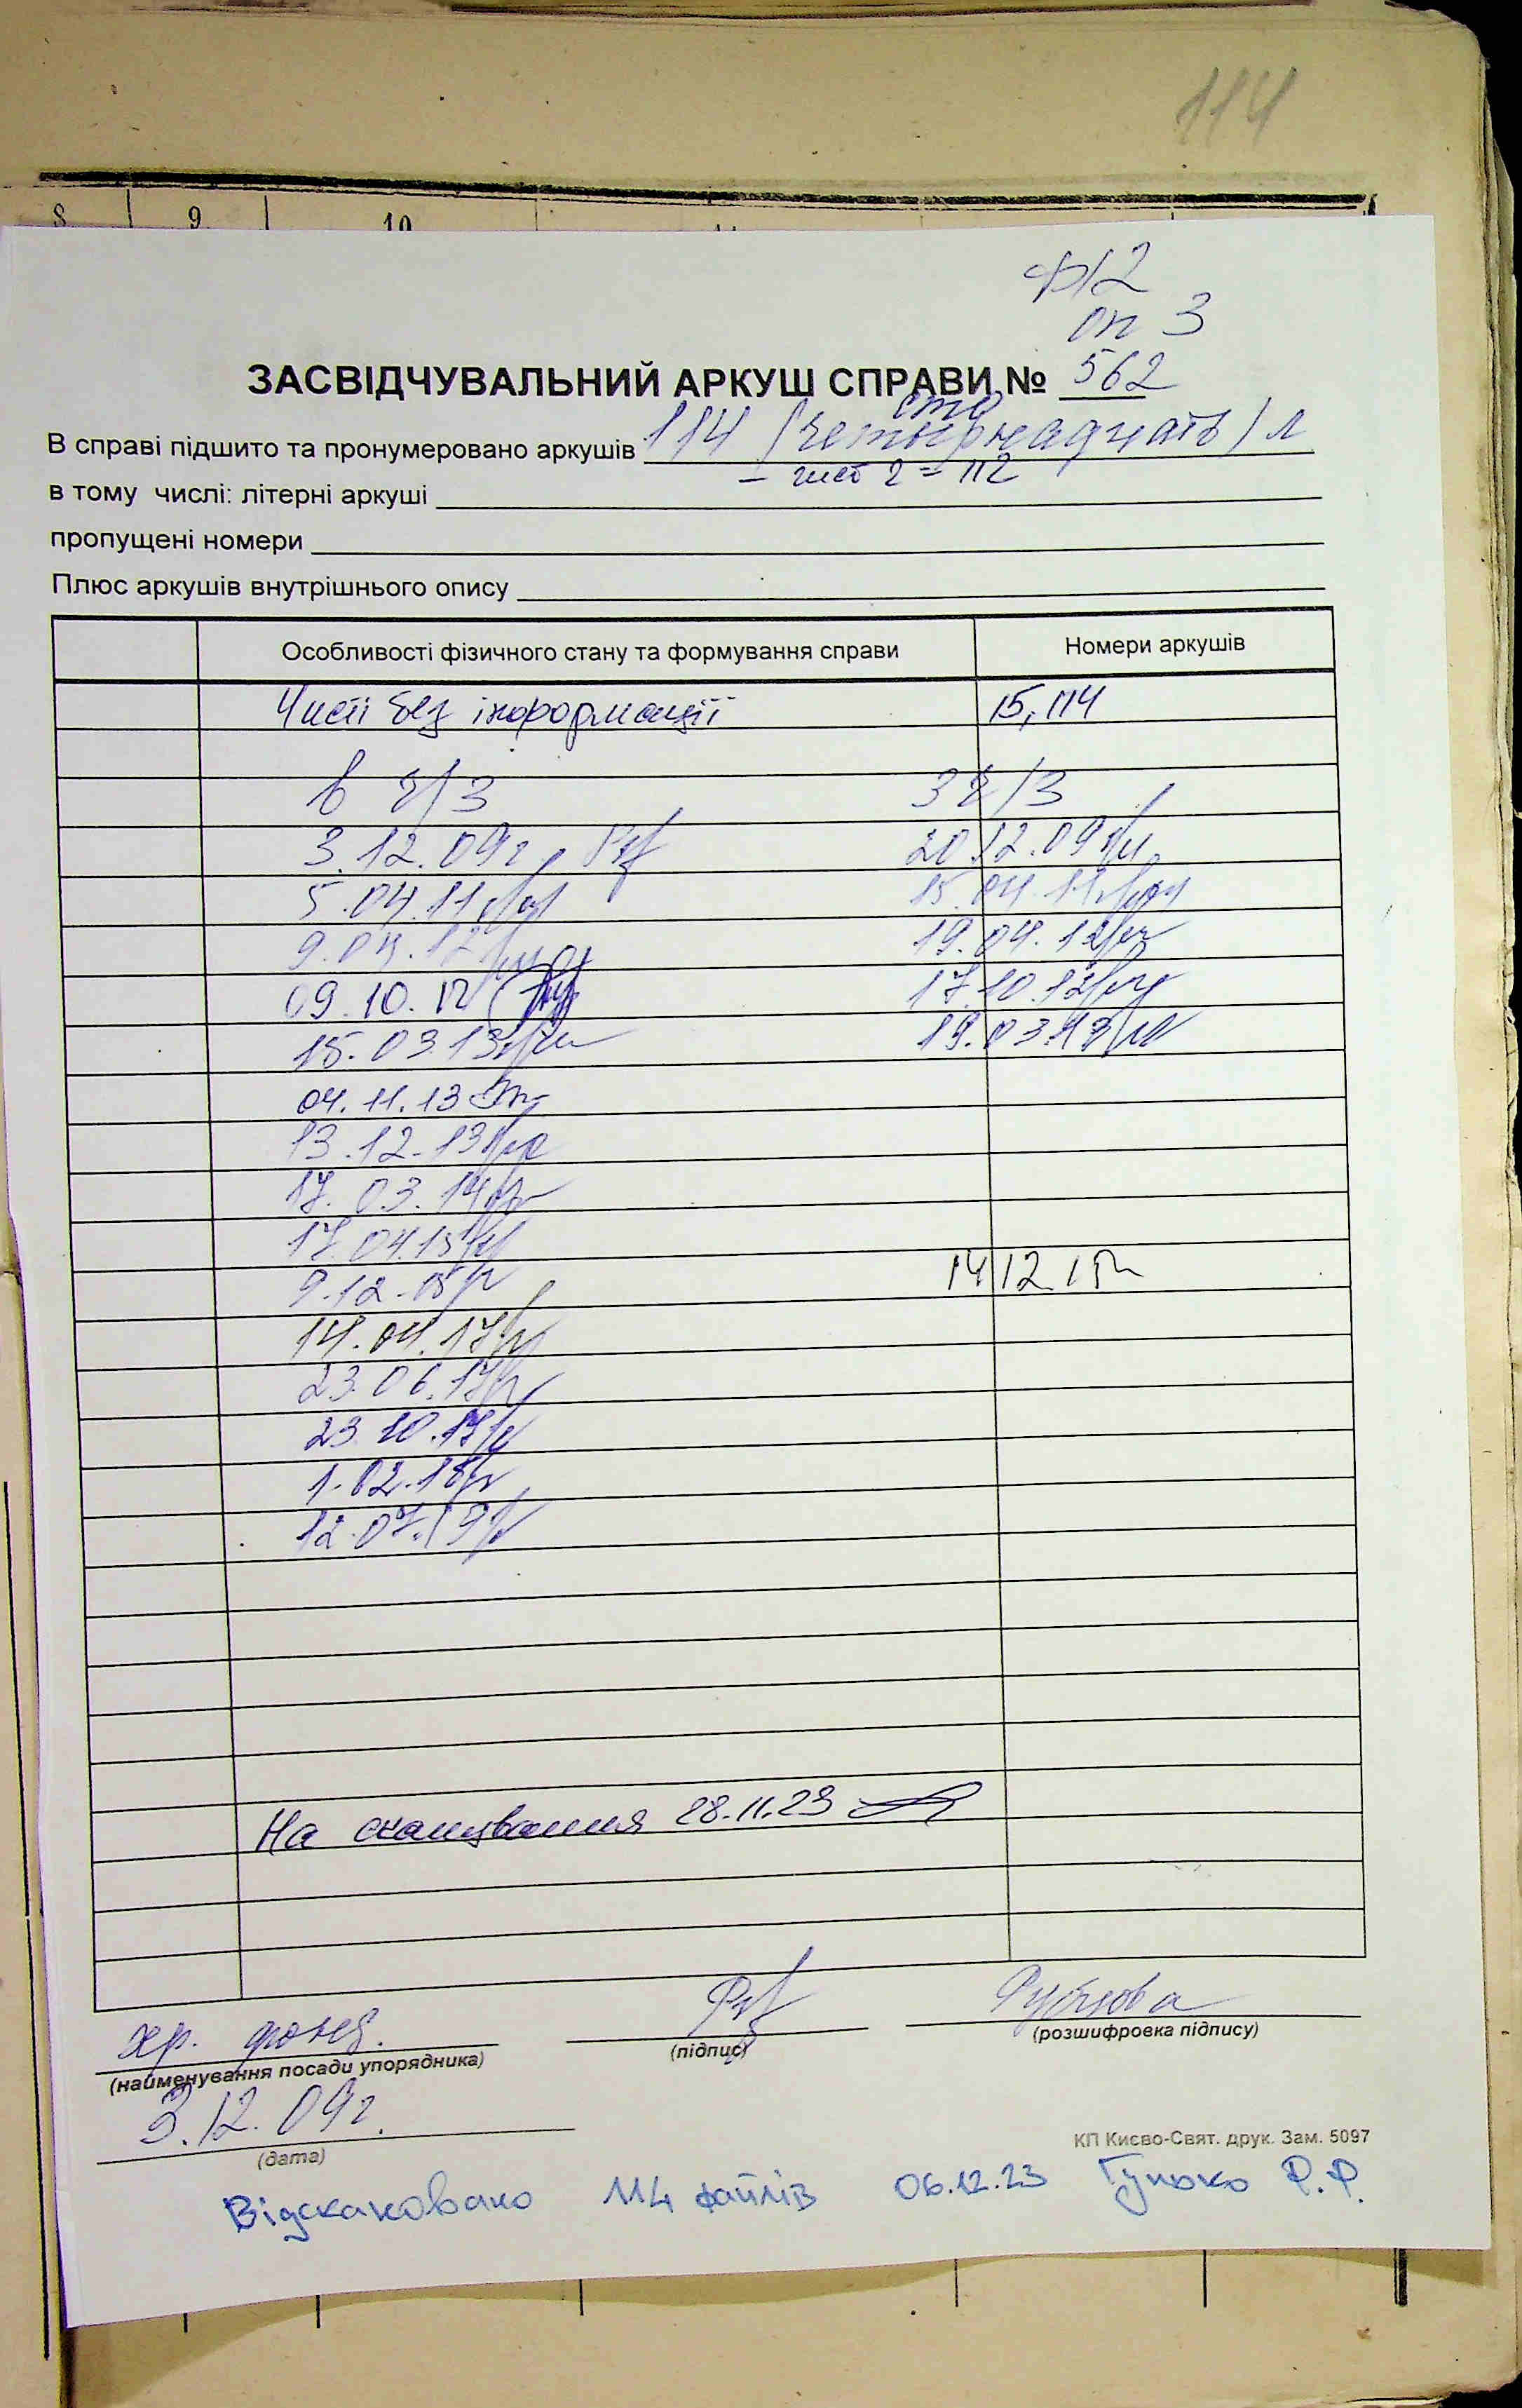 114
8 9 10
ф12
оп 3
ЗАСВІДЧУВАЛЬНИЙ АРКУШ СПРАВИ № 562
сто
В справі підшито та пронумеровано аркушів 114 (четырнадцать) л
– чист 2 = 112
в тому числі: літерні аркуші
пропущені номери
Плюс аркушів внутрішнього опису
Особливості фізичного стану та формування справи Номери аркушів
Чисті без інформації 15, 114
в ч/з З ч/з
3.12.09г 20.12.09
5.04.11 15.04.11
9.04.12 19.04.12
09.10.12 17.10.12
15.03.13 19.03.13
04.11.13
13.12.13
17.03.14
17.04.15
9.12.15 14/12
14.04.17
23.06.17
23.10.17
1.02.18
12.07.19
На сканування 28.11.23
хр. фонд. Рубцова
(найменування посади упорядника) (підпис) (розшифровка підпису)
3.12.09г.
(дата)
КП Києво-Свят. друк. Зам. 5097
Відскановано 114 файлів 06.12.23 Гунько Р.Р.